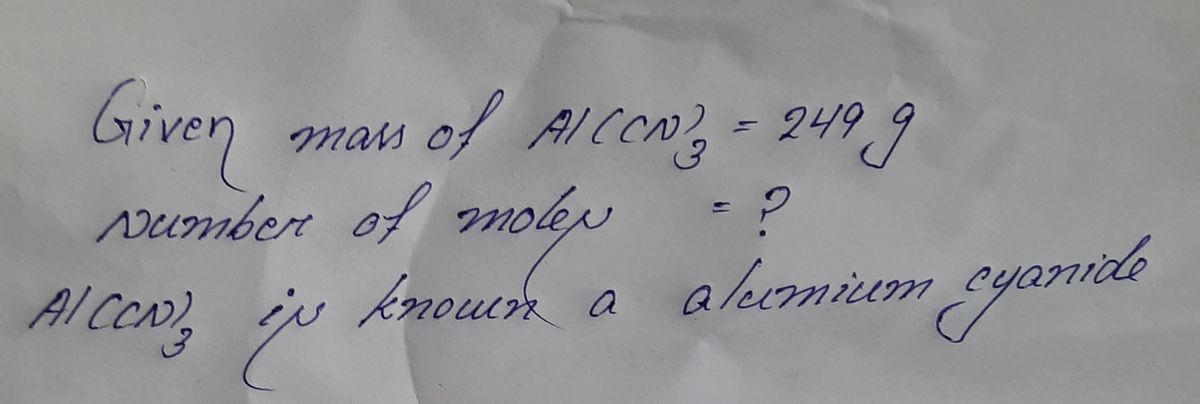 Given mass of Al(CN)3 = 249 g
Number of moles = ?
Al(CN)3 is known a alumium cyanide